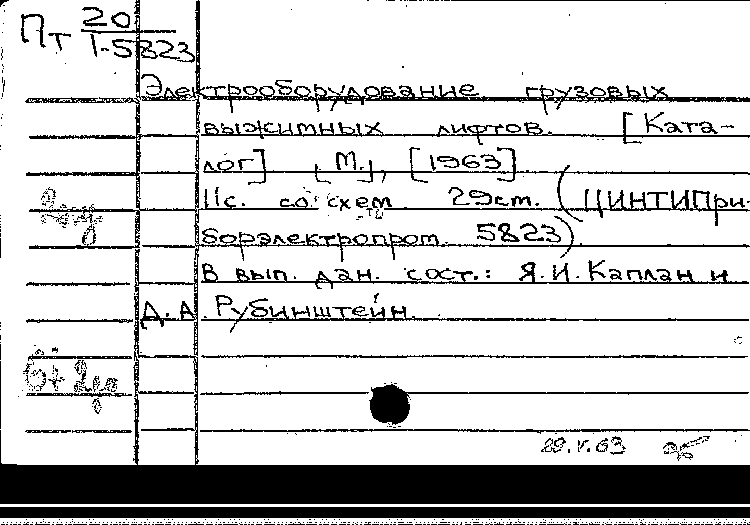 Пт 20
I-5823
Электрооборудование грузовых
выжимных лифтов. [Ката-
лог] [М.], [1963]
11с. со схем. 29см. (ЦИНТИПри-
борэлектропром. 5823).
В вып. дан. сост.: Я.И. Каплан и
Д.А. Рубинштейн.
29.V.63